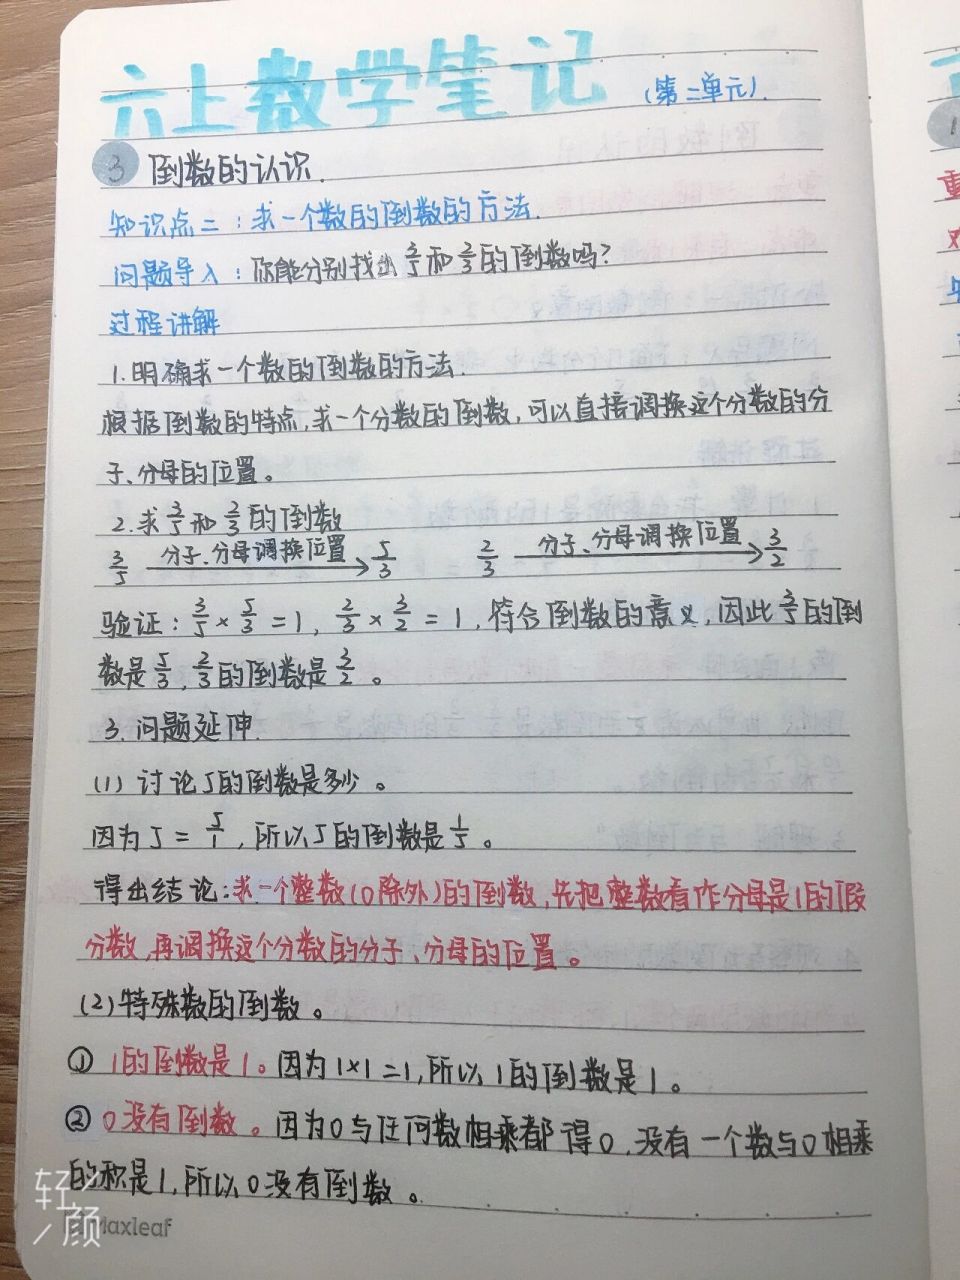 六上数学笔记 (第三单元).
3 倒数的认识.
知识点二：求一个数的倒数的方法.
问题导入：你能分别找出3/5和2/3的倒数吗?
过程讲解
1.明确求一个数的倒数的方法.
根据倒数的特点,求一个分数的倒数,可以直接调换这个分数的分
子、分母的位置。
2.求3/5和2/3的倒数
3/5 分子、分母调换位置→ 5/3 2/3 分子、分母调换位置→ 3/2
验证：3/5×5/3=1, 2/3×3/2=1,符合倒数的意义,因此3/5的倒
数是5/3,2/3的倒数是3/2。
3.问题延伸.
(1)讨论5的倒数是多少。
因为5=5/1,所以5的倒数是1/5。
得出结论:求一个整数(0除外)的倒数,先把整数看作分母是1的假
分数,再调换这个分数的分子、分母的位置。
(2)特殊数的倒数。
① 1的倒数是1。因为1×1=1,所以1的倒数是1。
② 0没有倒数。因为0与任何数相乘都得0,没有一个数与0相乘
的积是1,所以0没有倒数。
轻颜
Maxleaf
1
重
难